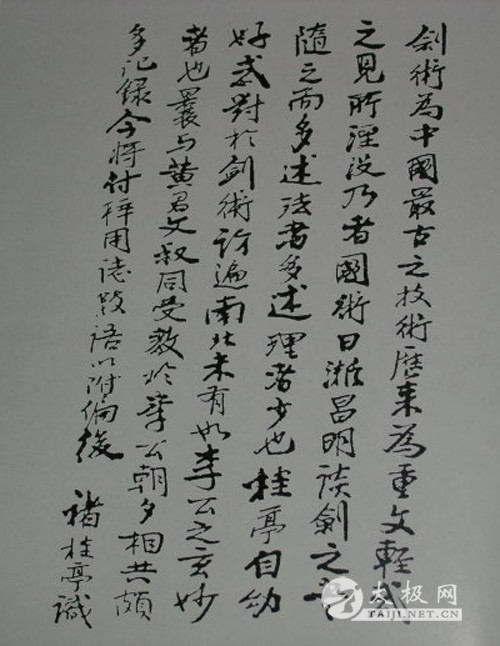 劍術為中國最古之技術歷来為重文輕武
之見所湮没乃者國術日漸昌明談劍之書
隨之而多述法者多述理者少也桂亭自幼
好武對於劍術訪遍南北未有如李公之玄妙
者也曩与黄君文叔同受教於李公朝夕相共頗
多記録今將付梓用誌数語以附偏後
褚桂亭識
太极网
TAIJI.NET.CN